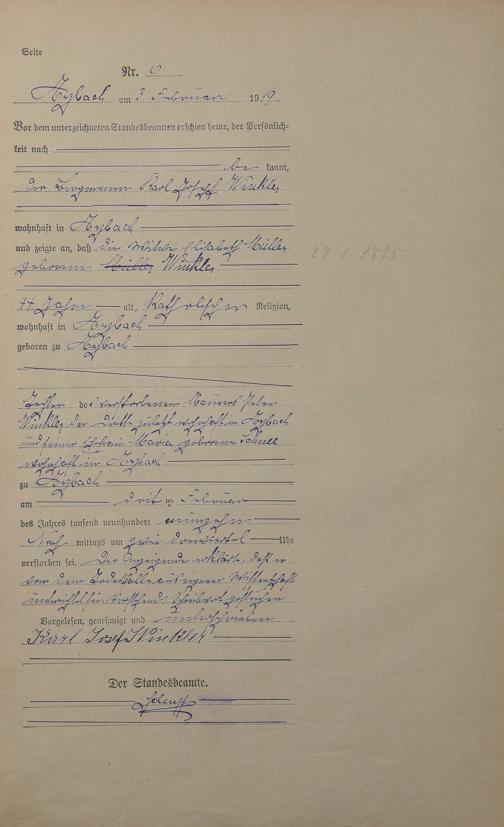 Seite
Nr. 6
Azbach am 3. Februar 1919.
Vor dem unterzeichneten Standesbeamten erschien heute, der Persönlich-
keit nach
be kannt,
der Bergmann Karl Josef Winkler
wohnhaft in Azbach
und zeigte an, daß die Witwe Elisabeth Müller
geborene Müller Winkler
27.1.1875
44 Jahre alt, Katholischer Religion,
wohnhaft in Azbach
geboren zu Azbach
Tochter des verstorbenen Maurers Peter
Winkler zuletzt wohnhaft in Azbach
und seiner Ehefrau Maria geborene
wohnhaft in Azbach
zu Azbach
am drei ten Februar
des Jahres tausend neunhundert neunzehn
Nach mittags um zwei dreiviertel Uhr
verstorben sei. Der Anzeigende erklärte, daß er
von dem Todesfalle aus eigener Wissenschaft
unterrichtet sei.
Vorgelesen, genehmigt und unterschrieben
Karl Josef Winkler
Der Standesbeamte.